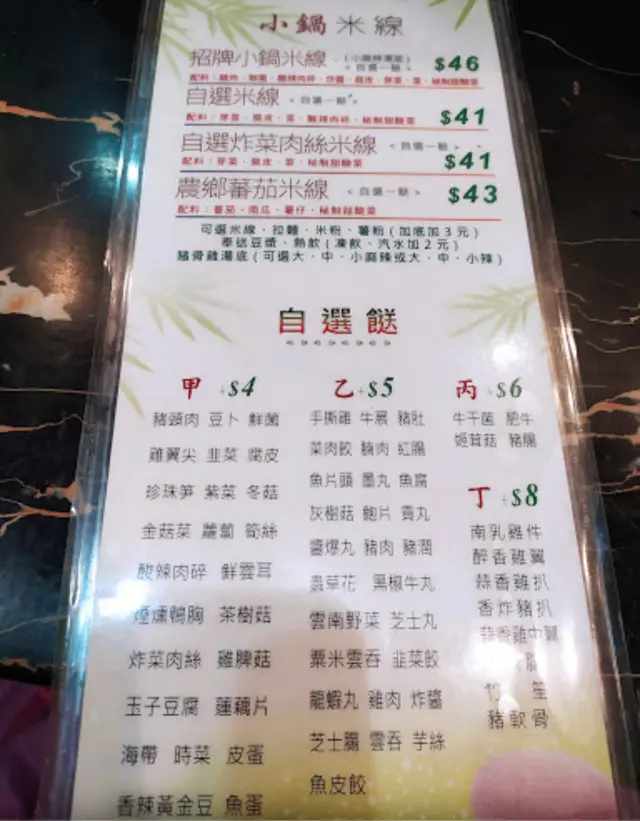 小鍋米線
招牌小鍋米線 $46
<自選一餸>
自選米線 <自選一餸> $41
配料：芽菜、腐皮、菜、酸辣肉碎、秘制甜酸菜
自選炸菜肉絲米線 <自選一餸> $41
配料：芽菜、腐皮、菜、秘制甜酸菜
農鄉蕃茄米線 <自選一餸> $43
配料：番茄、南瓜、薯仔、秘制甜酸菜
可選米線、拉麵、米粉、薯粉(加底加3元)
奉送豆漿、熱飲(凍飲、汽水加2元)
豬骨雞湯底(可選大、中、小麻辣或大、中、小辣)
自選餸
甲 +$4
豬頭肉 豆卜 鮮菌
雞翼尖 韭菜 腐皮
珍珠笋 紫菜 冬菇
金菇菜 蘿蔔 筍絲
酸辣肉碎 鮮雲耳
煙燻鴨胸 茶樹菇
炸菜肉絲 雞脾菇
玉子豆腐 蓮藕片
海帶 時菜 皮蛋
香辣黃金豆 魚蛋
乙 +$5
手撕雞 牛展 豬肚
菜肉餃 腩肉 紅腸
魚片頭 墨丸 魚腐
灰樹菇 鮑片 貢丸
醬爆丸 豬肉 豬潤
蟲草花 黑椒牛丸
雲南野菜 芝士丸
粟米雲吞 韭菜餃
龍蝦丸 雞肉 炸醬
芝士腸 雲吞 芋絲
魚皮餃
丙 +$6
牛干菌 肥牛
姬茸菇 豬腸
丁 +$8
南乳雞件
醉香雞翼
蒜香雞扒
香炸豬扒
蒜香雞中翼
竹笙
豬軟骨